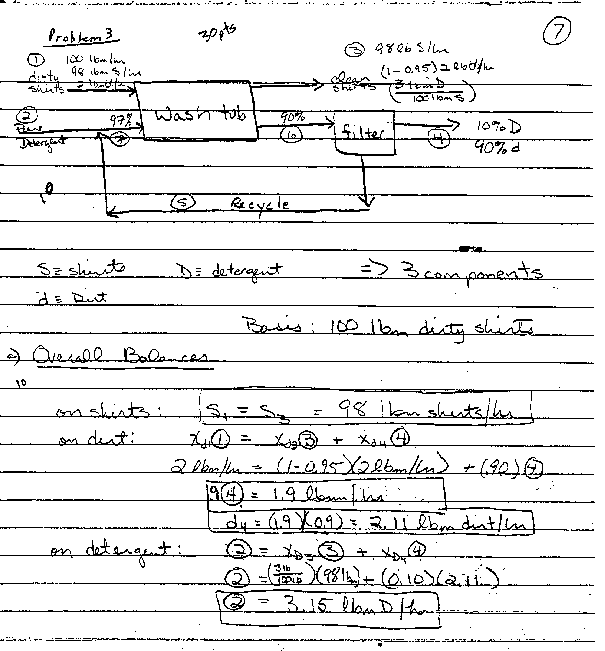 7
Problem 3
30 pts
① 100 lbm/hr
dirty 98 lbm S/hr
shirts 2 lbmd/hr
③ 98 lb S/hr
(1-0.95) 2 lbd/hr
clean shirts (3 lbm D / 100 lbm S)
②
Pure
Detergent
97%
⑦
Wash tub
90%
⑥
filter
④
10% D
90% d
⑤ Recycle
S ≡ shirts D ≡ detergent => 3 components
d ≡ Dirt
Basis: 100 lbm dirty shirts
a) Overall Balances
10
on shirts: S₁ = S₃ = 98 lbm shirts/hr
on dirt: x_d₁① = x_d₃③ + x_d₄④
2 lbm/hr = (1-0.95)(2 lbm/hr) + (.90)④
.9④ = 1.9 lbm/hr
d₄ = (1.9)(0.9) = 2.11 lbm dirt/hr
on detergent: ② = x_D₃③ + x_D₄④
② = (3lb/100lb)(98 lb) + (0.10)(2.11)
② = 3.15 lbm D/hour